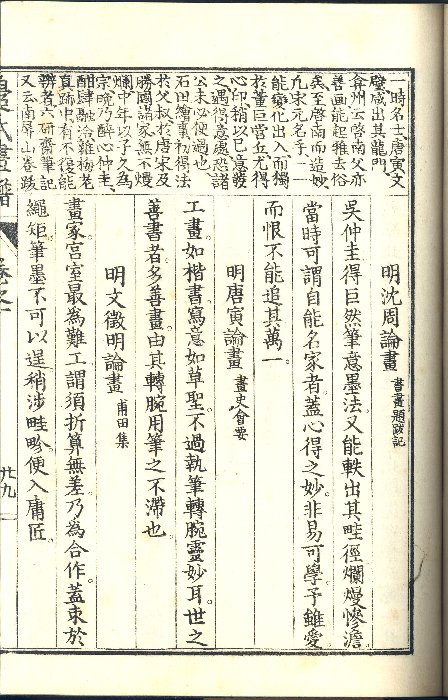 一時名士唐寅文
璧咸出其龍門
弇州云啓南父亦
善画能起雅去俗
矣至啓南而造妙
凡宋元名手一一
能變化出入而獨
於董巨嵓丘尤得
心印稍以已意發
之遇得意處恐諸
公未必便過也
石田繪事初得法
於父叔於唐宋及
勝國諸家無不熳
爛中年以子久為
宗晚乃醉心仲圭
酣肆融洽雜梅老
真跡中有不復能
辨者 六研齋筆記
又云南屏山卷跋
明沈周論畫 書畫題跋記
吳仲圭得巨然筆意墨法又能軼出其畦徑爛熳慘澹
當時可謂自能名家者蓋心得之妙非易可學予雖愛
而恨不能追其萬一
明唐寅論畫 畫史會要
工畫如楷書寫意如草聖不過執筆轉腕靈妙耳世之
善書者多善畫由其轉腕用筆之不滯也
明文徵明論畫 甫田集
畫家宮室最為難工謂須折算無差乃為合作蓋束於
繩矩筆墨不可以逞稍涉畦畛便入庸匠
廿九